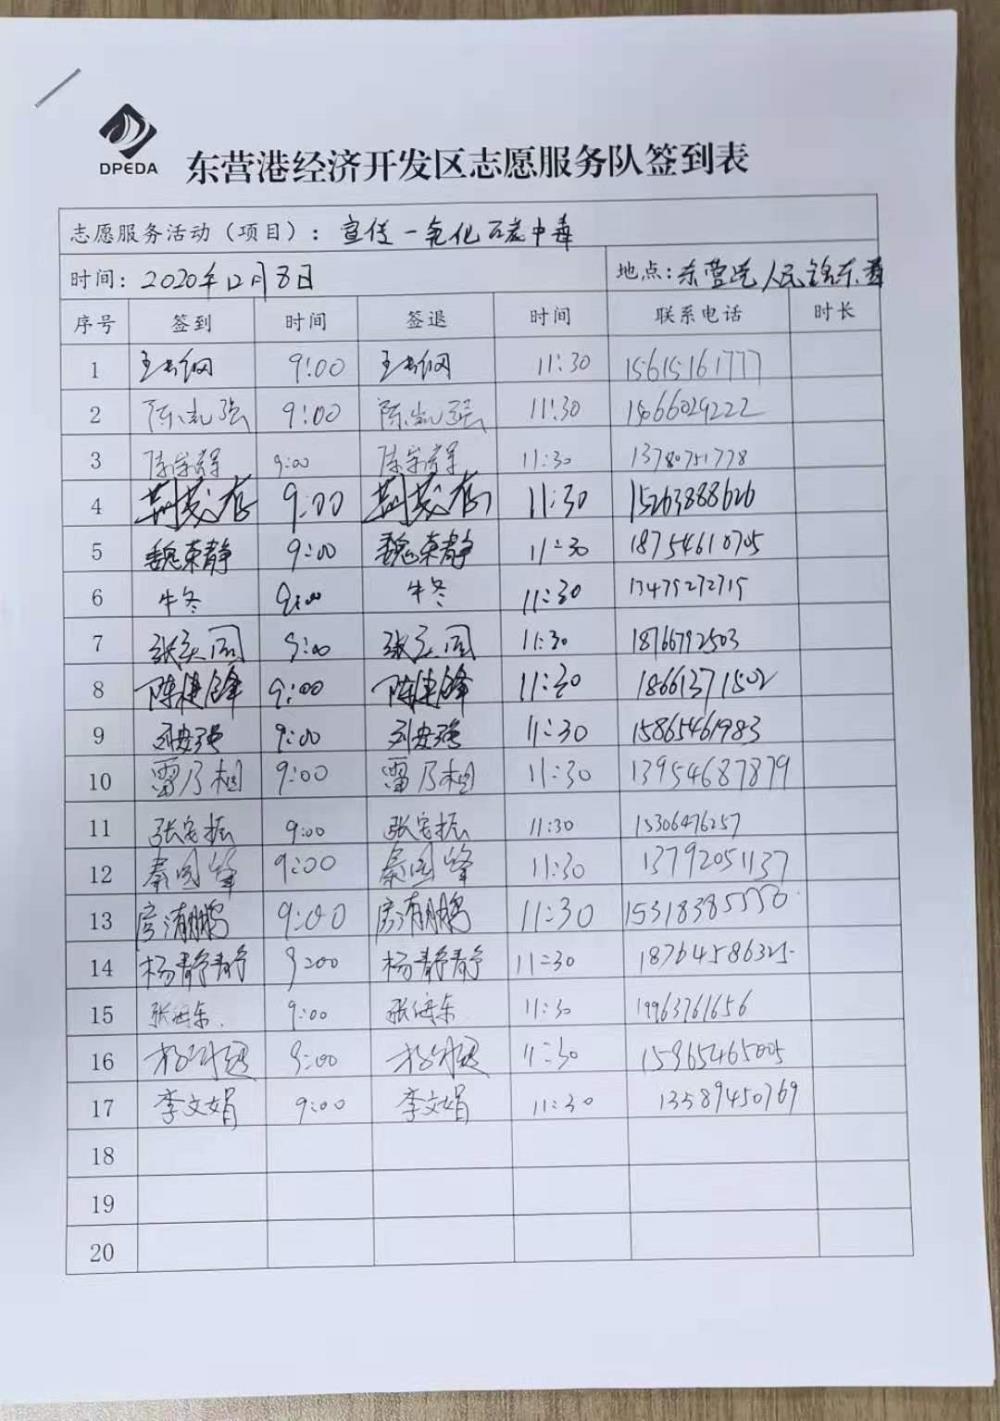 DPEDA
东营港经济开发区志愿服务队签到表
志愿服务活动（项目）：宣传一氧化碳中毒
时间：2020年12月8日 地点：东营港人民路东首
序号 签到 时间 签退 时间 联系电话 时长
1 9:00 11:30 15615161777
2 陈凯强 9:00 陈凯强 11:30
3 9:00 11:30 13780751778
4 荆茂存 9:00 荆茂存 11:30 15263888626
5 魏东静 9:00 魏东静 11:30 18754610705
6 牛冬 9:00 牛冬 11:30 13475272715
7 9:00 11:30 18766792503
8 陈建锋 9:00 陈建锋 11:30 18661371502
9 刘安强 9:00 刘安强 11:30 15865461983
10 雷乃相 9:00 雷乃相 11:30 13954687879
11 张宝振 9:00 张宝振 11:30 15306476257
12 秦国峰 9:00 秦国峰 11:30 13792051137
13 房清鹏 9:00 房清鹏 11:30
14 杨静静 9:00 杨静静 11:30 18764586325
15 张海东 9:00 张海东 11:30 19963761656
16 9:00 11:30
17 李文娟 9:00 李文娟 11:30 13589450769
18
19
20